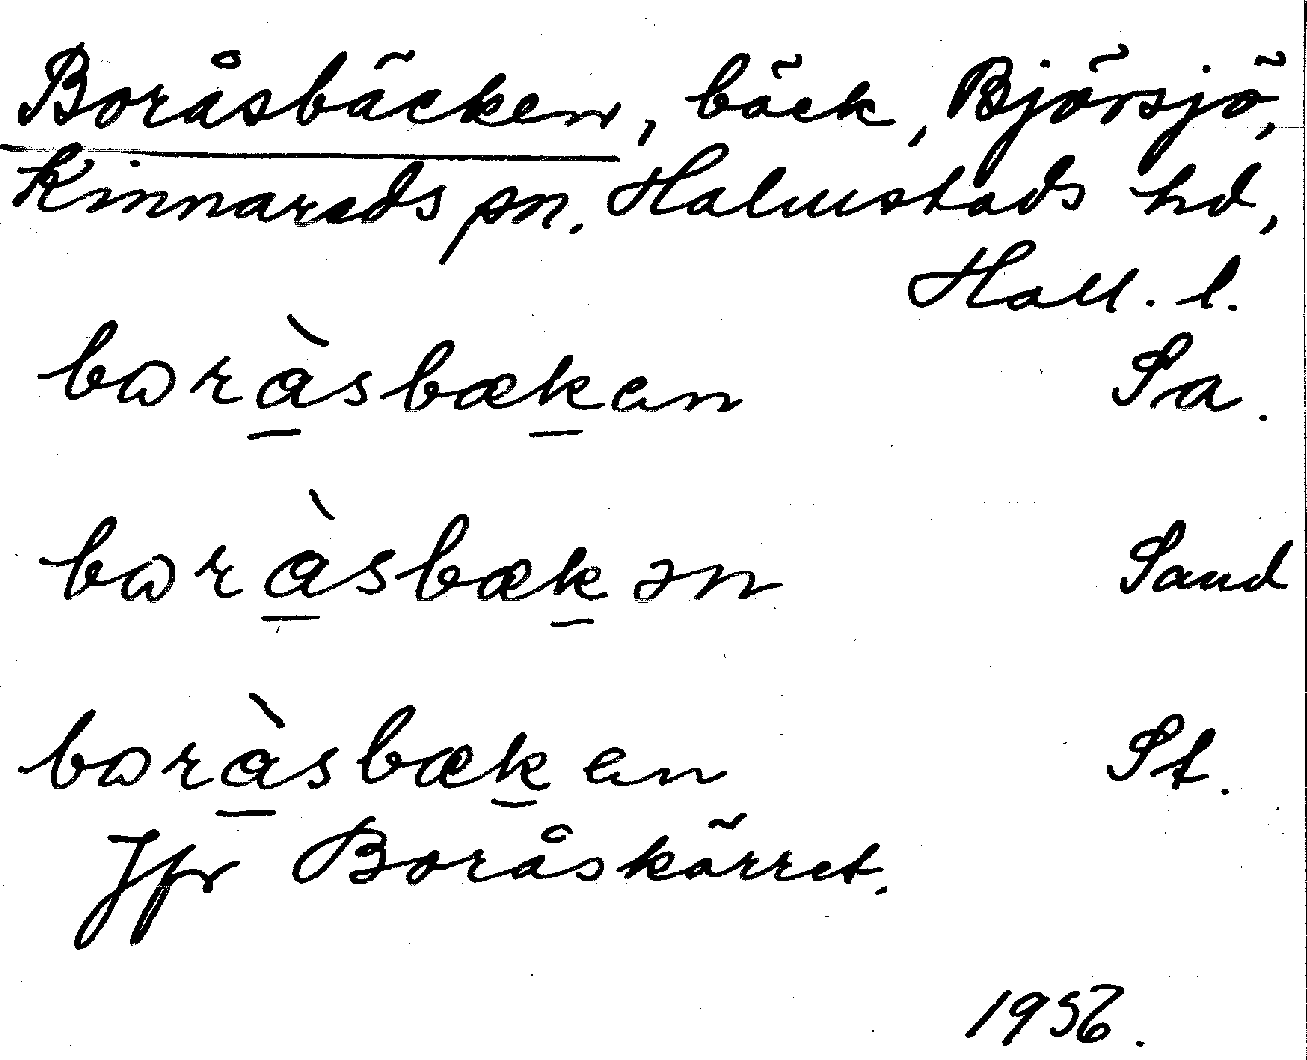 Boråsbäcken, bäck, Björsjö,
Kinnareds sn. Halmstads hd,
Hall. l.
bωràsbækɐn Sa.
bωràsbækən Sand
bωràsbækɐn St.
Jfr Boråskärret.
1956.